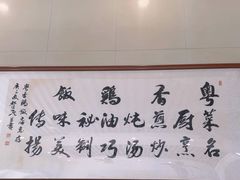 粤菜名
厨烹
香煎炒
炖汤
鸡油巧
秘制
饭味美
传扬